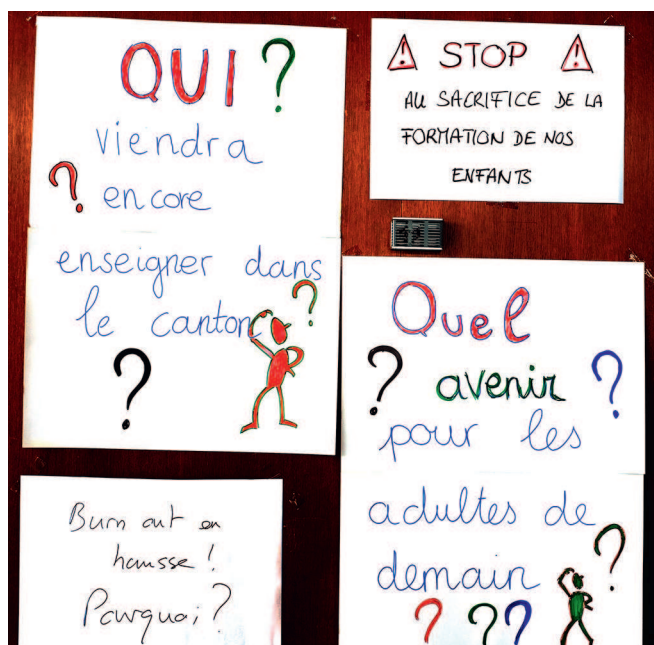 QUI ?
viendra
? encore
enseigner dans
le canton ?
?
⚠ STOP ⚠
AU SACRIFICE DE LA
FORMATION DE NOS
ENFANTS
Quel
? avenir ?
pour les
adultes de
demain ?
? ? ?
Burn out en
hausse !
Pourquoi ?